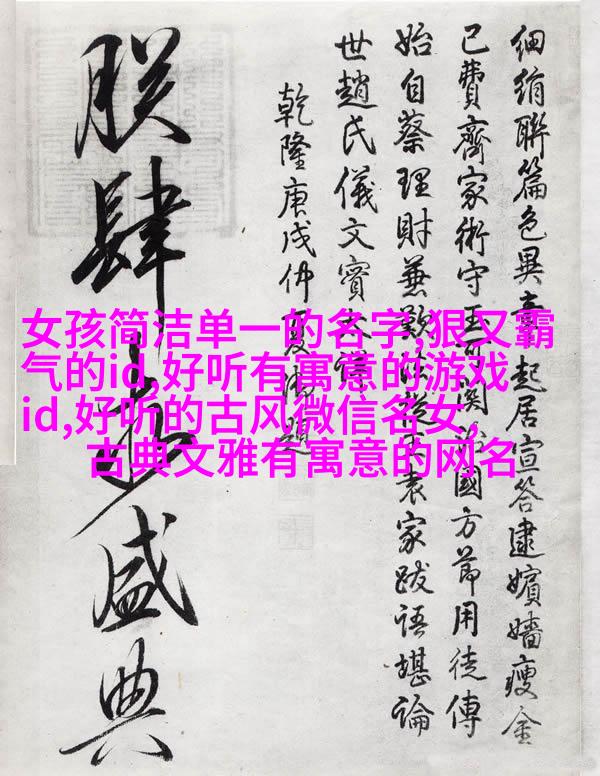 女孩简洁单一的名字,狠又霸
气的id,好听有寓意的游戏
id,好听的古风微信名女,
古典文雅有寓意的网名
細絹聯篇色異起居宣答逮嬪嬙瘦金
已費齊家術守國方節用徒傳
始自蔡理財兼歎家跋語堪論
世趙氏儀文實
乾隆庚戌仲夏御題
朕肆盛典